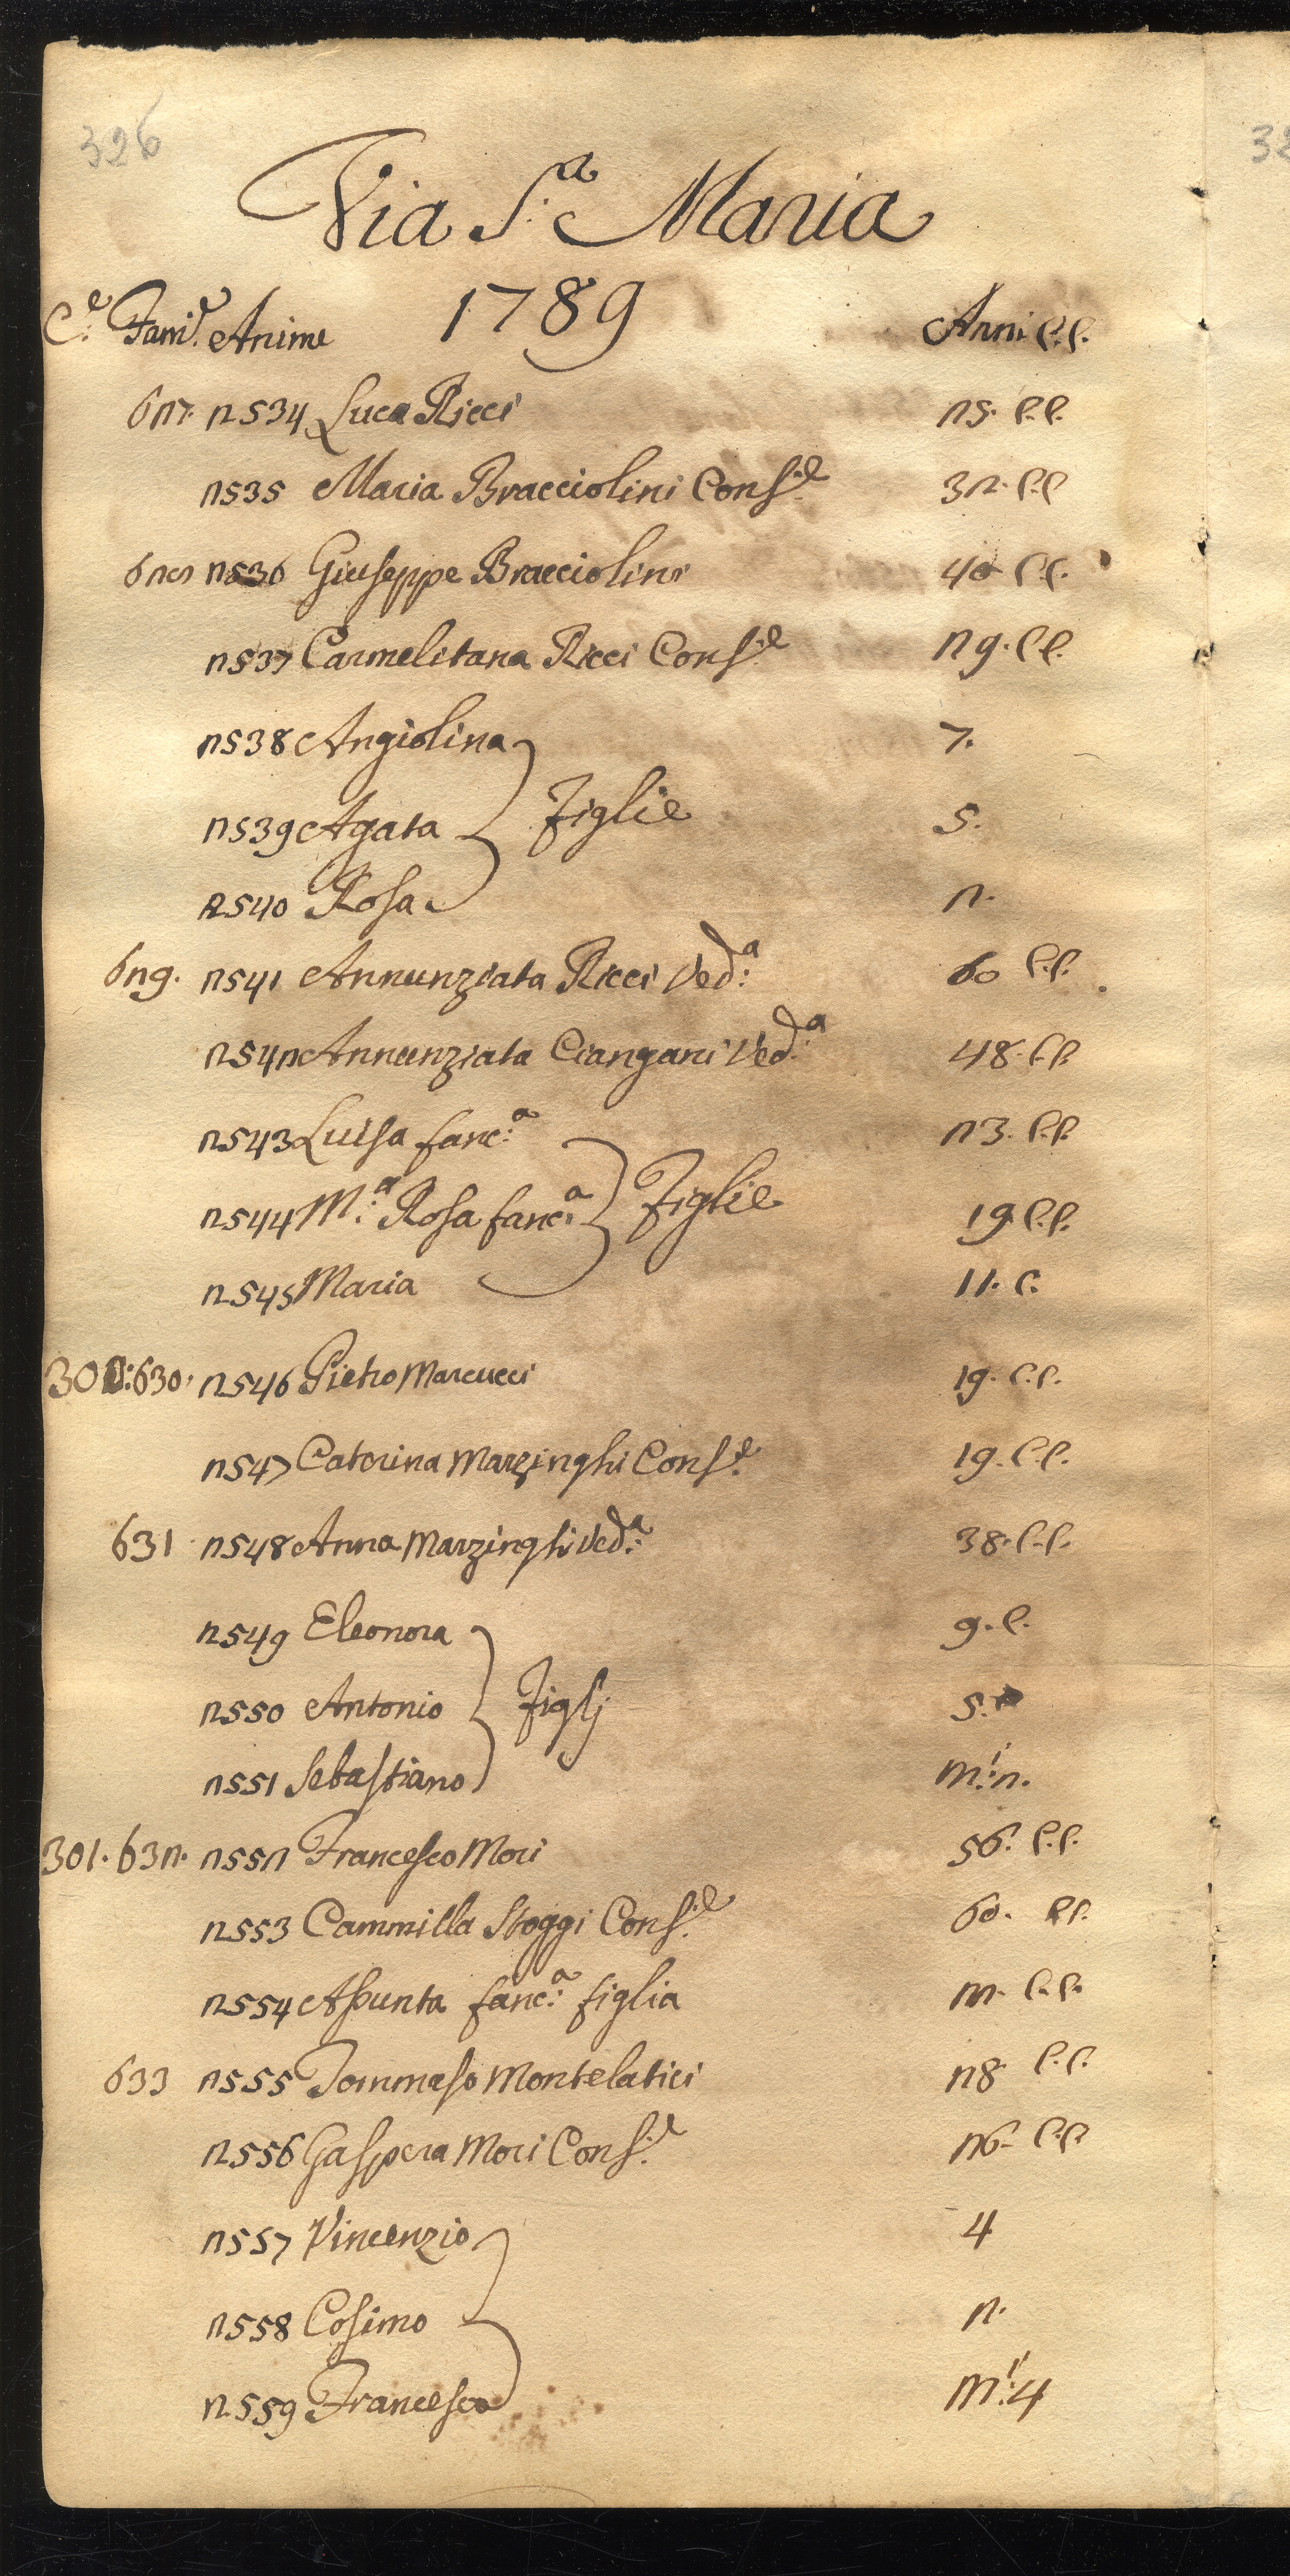 326
Via S.ª Maria
1789
C.e Fam.e Anime Anni C.C.
627. 2534 Luca Ricci 25. C.C.
2535 Maria Bracciolini Cons.e 32. C.C
628 2536 Giuseppe Bracciolini 40 C.C.
2537 Carmelitana Ricci Cons.e 29. C.C.
2538 Angiolina 7.
2539 Agata Figlie 5.
2540 Rosa 2.
629. 2541 Annunziata Ricci Ved.ª 60 C.C.
2542 Annunziata Ciangani Ved.ª 48. C.C.
2543 Luisa fanc.ª 23. C.C.
2544 M.ª Rosa fanc.ª Figlie 19 C.C.
2545 Maria 11. C.
300: 630. 2546 Pietro Marcucci 19. C.C.
2547 Caterina Marzinghi Cons.e 19. C.C.
631 2548 Anna Marzinghi Ved.ª 38. C.C.
2549 Eleonora 9. C.
2550 Antonio Figlj 5.
2551 Sebastiano m.i 2.
301. 632. 2552 Francesco Mori 56. C.C.
2553 Cammilla Stoggi Cons.e 60. C.C.
2554 Assunta fanc.ª figlia 22. C.C.
633 2555 Tommaso Montelatici 28 C.C.
2556 Gaspera Mori Cons.e 26. C.C
2557 Vincenzio 4
2558 Cosimo 2.
2559 Francesco m.i 4